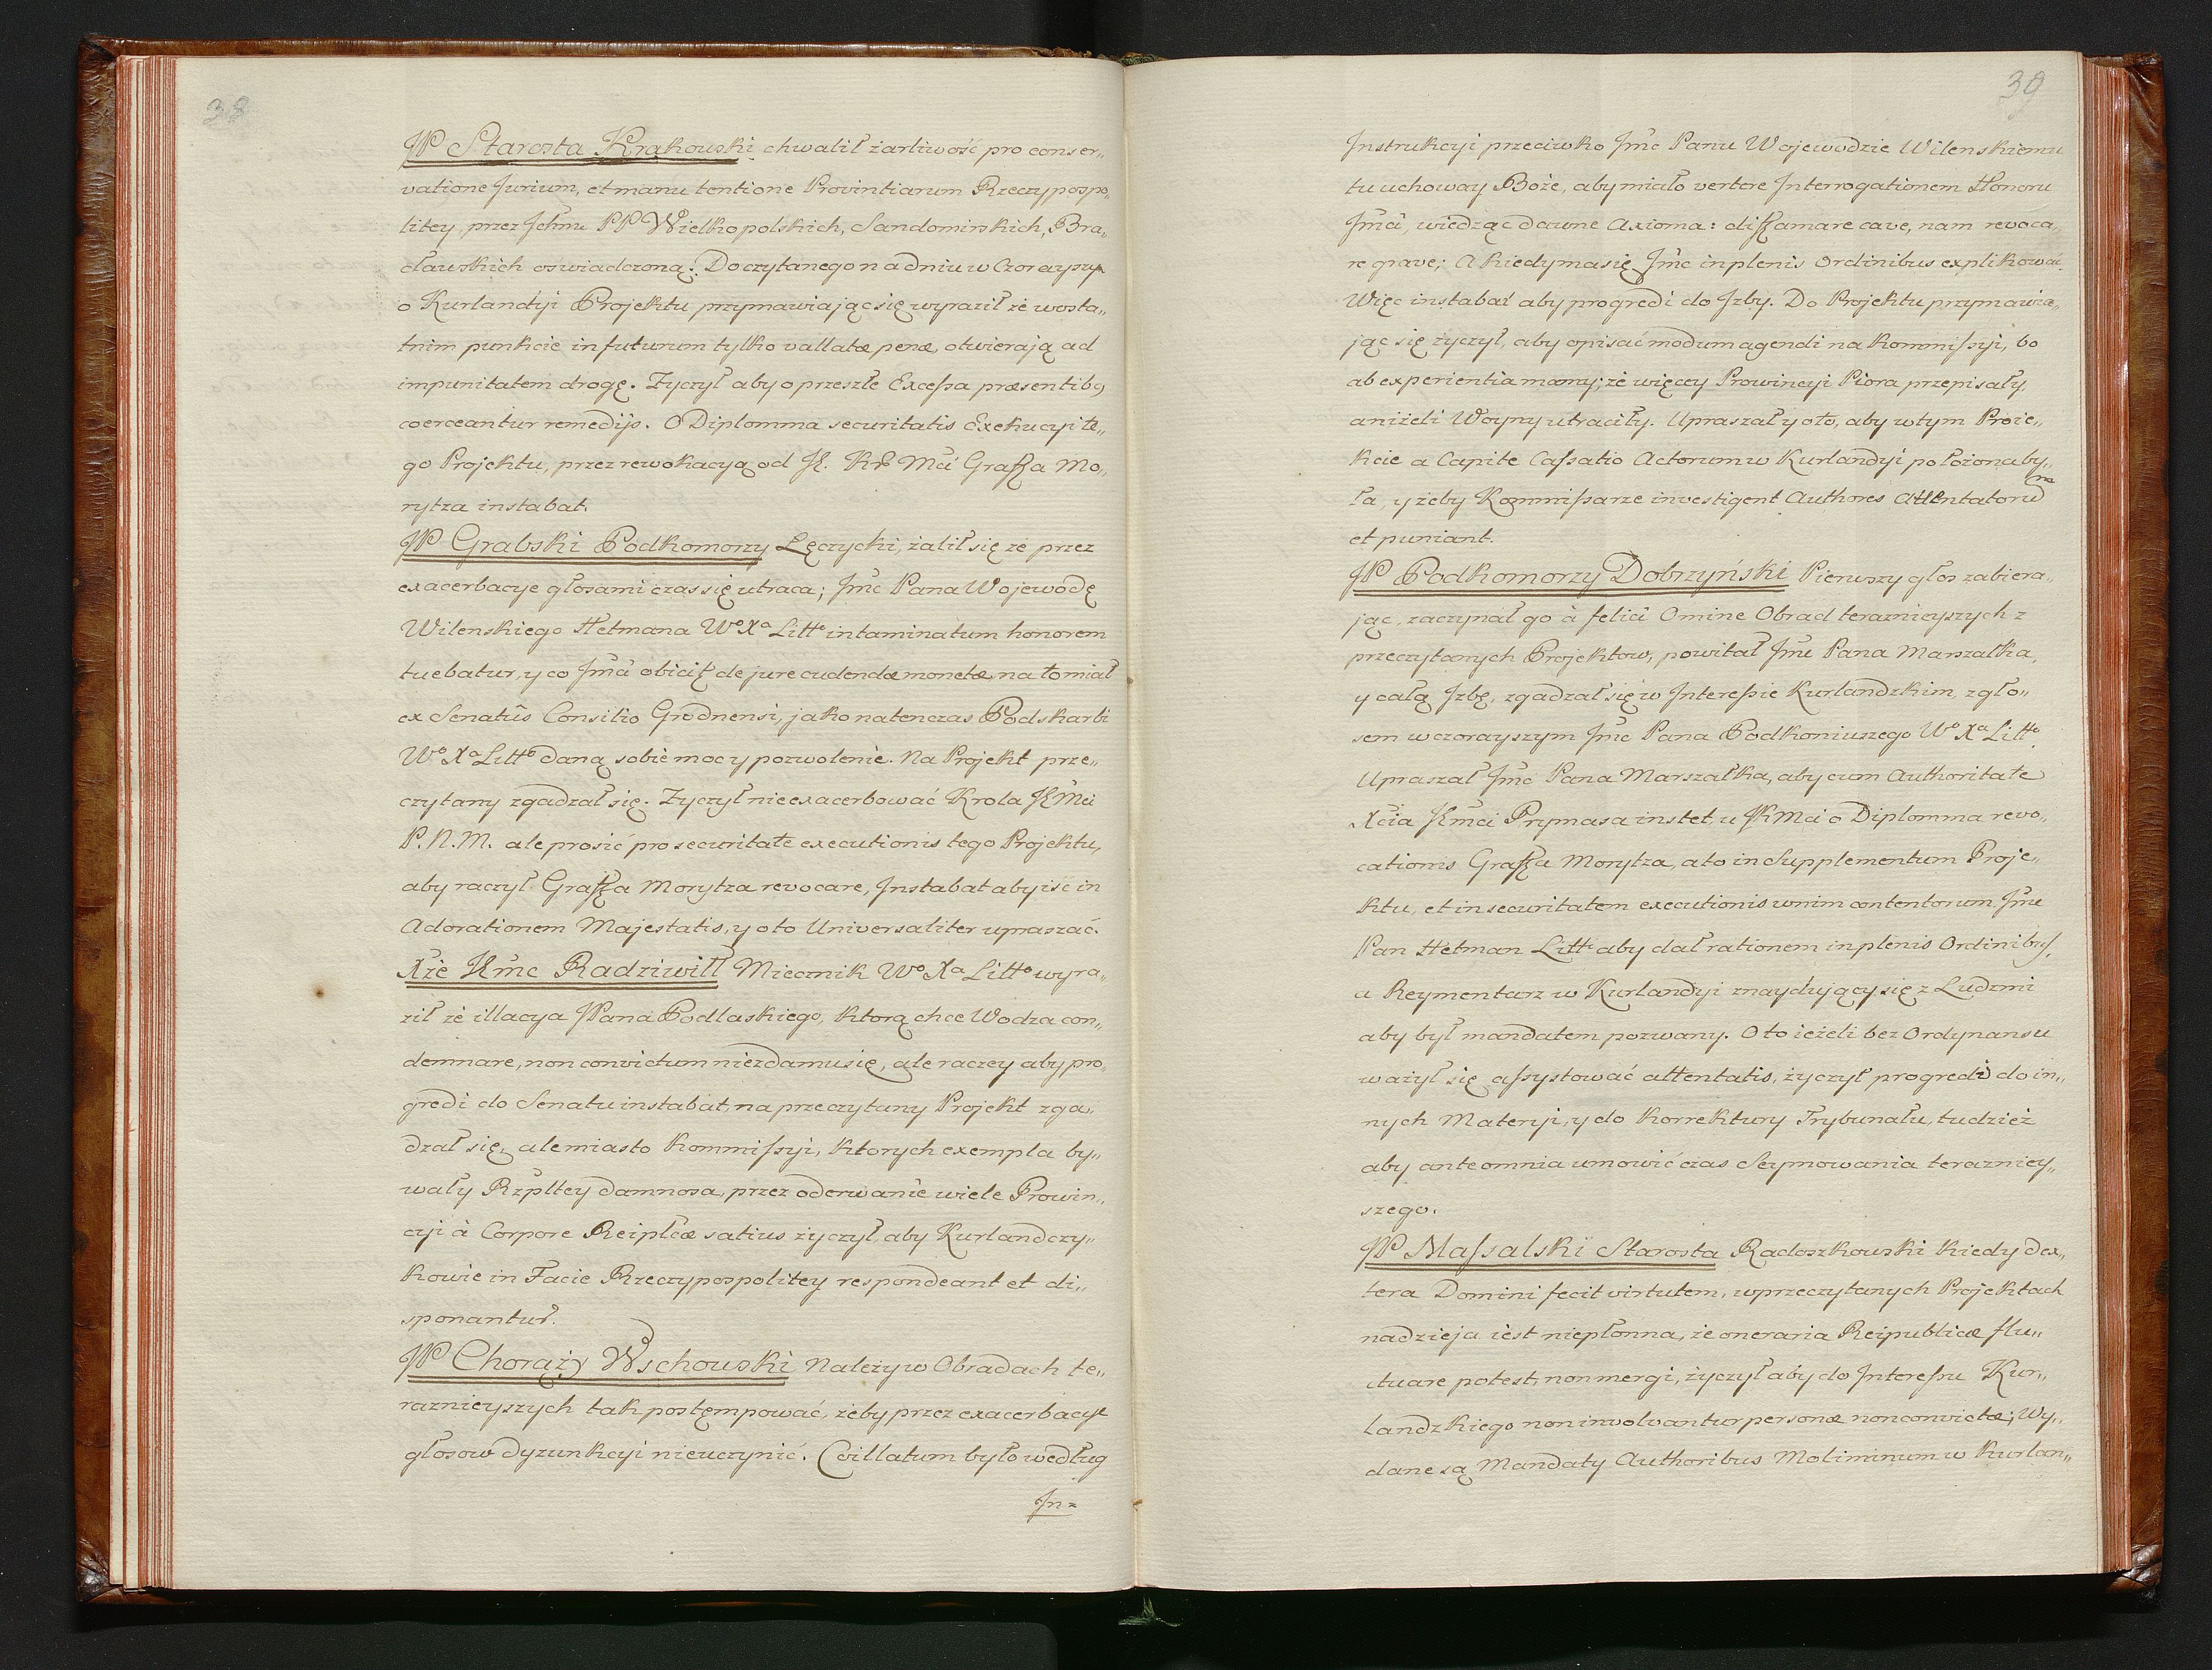 38
JP Starosta Krakowski chwalił żarliwość pro conser„
vatione Jurium, et manu tentione Provintiarum Rzeczypospo„
litey przez Ichmę PP Wielkopolskich, Sandomirskich, Bra„
cławskich oswiadczoną. Do czytanego na dniu wczorayszym
o Kurlandyi Projektu przymawiając się wyraził że w osta„
tnim punkcie in futurum tylko vallatæ penæ, otwierają ad
impunitatem drogę. Zyczył aby o przeszłe Excessa præsentibg
coerceantur remedijs. O Diplomma securitatis Exekucyi te„
go Projektu, przez rewokacyą od J. K Mci Graffa Mo„
rytza instabat.
JP Grabski Podkomorzy Łęczycki, żalił się że przez
exacerbacye głosami czas się utraca; Jmc Pana Wojewodę
Wilenskiego Hetmana Wº Xª Littº intaminatum honorem
tuebatur, y co Jmci obicit de jure cudendæ monetæ, na to miał
ex Senatûs Consilio Grodnensi, jako natenczas Podskarbi
Wº Xª Littº daną sobie moc y pozwolenie. Na Projekt prze„
czytany zgadzał się. Zyczył nie exacerbować Krola JMci
P. N. M. ale prosić pro securitate executionis tego Projektu,
aby raczył Graffa Morytza revocare, Instabat aby iść in
Adorationem Majestatis, y o to Universaliter upraszać.
Xże Jmc Radziwiłł Miecznik Wº Xª Littº wyra„
ził że illacya JPana Podlaskiego, ktorą chce Wodza con„
demnare, non convictum niezda mu się, ale raczey aby pro„
gredi do Senatu instabat, na przeczytany Projekt zga„
dzał się, ale miasto Kommissyi, ktorych exempla by„
wały Rzpltey damnosa, przez oderwanie wiele Prowin„
cyi à Corpore Reiplcæ satius życzył, aby Kurlandczy„
kowie in Facie Rzeczypospolitey respondeant et di„
sponantur.
JP Chorąży Wschowski Należy w Obradach te„
raznieyszych tak postęmpować, żeby przez exacerbacye
głosow dyzunkcyi nieuczynić. Co illatum było według
In=
39
Instrukcyi przeciwko Jmc Panu Wojewodzie Wilenskiemu
tu uchoway Boże, aby miało vertere Interrogationem Honoru
Jmci, wiedząc dawne Axioma: diffamare cave, nam revoca„
re grave; A kiedy ma się Jmc in plenis Ordinibus explikować
Więc instabat aby progredi do Izby. Do Projektu przymawia„
jąc się życzył, aby opisać modum agendi na Kommissyi, bo
ab experientia mamy; że więcey Prowincyi Piora przepisały,
aniżeli Woyny utraciły. Upraszał y oto, aby w tym Proie„
kcie a Capite Cassatio Actorum w Kurlandyi położona by„
ła, y żeby Kommissarze investigent Authores Attentatorum
et puniant.
JP Podkomorzy Dobrzyński Pierwszy głos zabiera„
jąc, zaczynał go à felici Omine Obrad teraznieyszych z
przeczytanych Projektow, powitał Jmc Pana Marszałka,
y całą Izbę, zgadzał się w Interessie Kurlandzkim, z gło„
sem wczorayszym Jmc Pana Podkoniuszego Wº Xª Littº
Upraszał Jmc Pana Marszałka, aby cum Authoritate
Xcia Jmci Prymasa instet u JKMci o Diplomma revo„
cationis Graffa Morytza, a to in Supplementum Proje„
ktu, et in securitatem executionis w nim contentorum Jmc
Pan Hetman Littº aby dał rationem in plenis Ordinibus,
a Reymentarz w Kurlandyi znaydujący się z Ludzmi
aby był mandatem pozwany. O to ieżeli bez Ordynansu
ważył się assystować attentatis, życzył progredi do in„
nych Materyi, y do Korrektury Trybunału, tudzież
aby ante omnia umowić czas Seymowania terazniey„
szego.
JP Massalski Starosta Radoszkowski kiedy dex„
tera Domini fecit virtutem, w przeczytanych Projektach
nadzieja iest niepłonna, że oneraria Reipublicæ flu„
ctuare potest, non mergi, życzył aby do Interessu Kur„
landzkiego non involvantur personæ non convictæ; Wy„
dane są Mandaty Authoribus Moliminum w Kurlan„